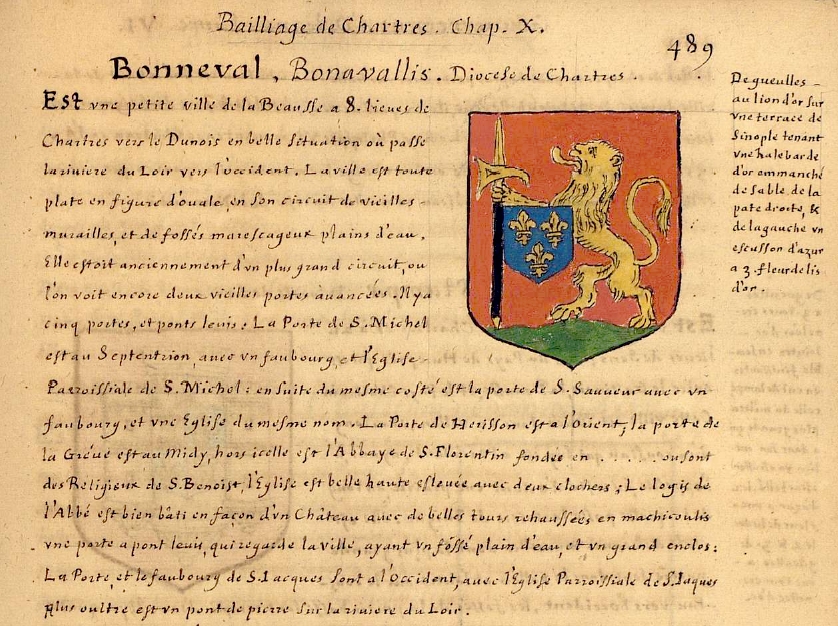 Bailliage de Chartres. Chap. X.
489
Bonneval, Bonavallis. Diocese de Chartres.
Est vne petite ville de la Beausse a 8. lieues de
Chartres vers le Dunois en belle situation où passe
la riviere du Loir vers l'occident. La ville est toute
plate en figure d'ouale, en son circuit de vieilles
murailles, et de fossés marescageux plains d'eau.
Elle estoit anciennement d'vn plus grand circuit, ou
l'on voit encore deux vieilles portes auancées. Il y a
cinq portes, et ponts leuis: La Porte de S. Michel
est au Septentrion, auec vn faubourg, et l'Eglise
Parroissiale de S. Michel: en suite du mesme costé est la porte de S. Sauueur auec vn
faubourg, et vne Eglise du mesme nom. La Porte de Herisson est a l'Orient; la porte de
la Gréue est au Midy, hors icelle est l'Abbaye de S. Florentin fondée en . . . . . ou sont
des Religieux de S. Benoist, l'Eglise est belle haute esleuée auec deux clochers; Le logis de
l'Abbé est bien bâti en façon d'vn Château auec de belles tours rehaussées en machicoulis
vne porte a pont leuis, qui regarde la ville, ayant vn fossé plain d'eau, et vn grand enclos:
La Porte, et le faubourg de S. Iacques sont a l'Occident, auec l'Eglise Parroissiale de S. Iaques
Plus oultre est vn pont de pierre sur la riuiere du Loir.
De gueulles
au lion d'or sur
vne terrace de
Sinople tenant
vne halebarde
d'or ommanché
de Sable, de la
pate droite, &
de la gauche vn
escusson d'azur
a 3. fleur de lis
d'or.